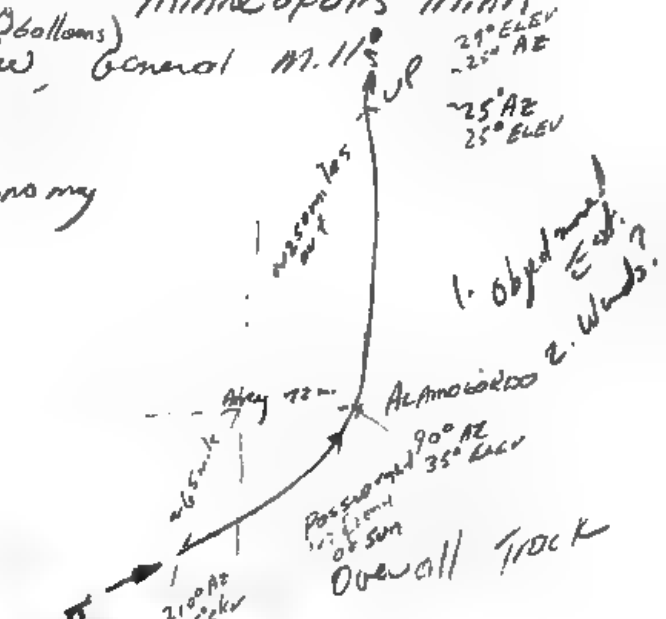 Minneapolis Minn
balloons)
General Mills
29° ELEV
~25° AZ
UP
~25° AZ
25° ELEV
nomy
~250 miles
out
1. Object moved
East.
2. Winds.
ALAMOGORDO
90° AZ
35° ELEV
~65 mile
Passed
in front
of sun
Overall Track
210° AZ